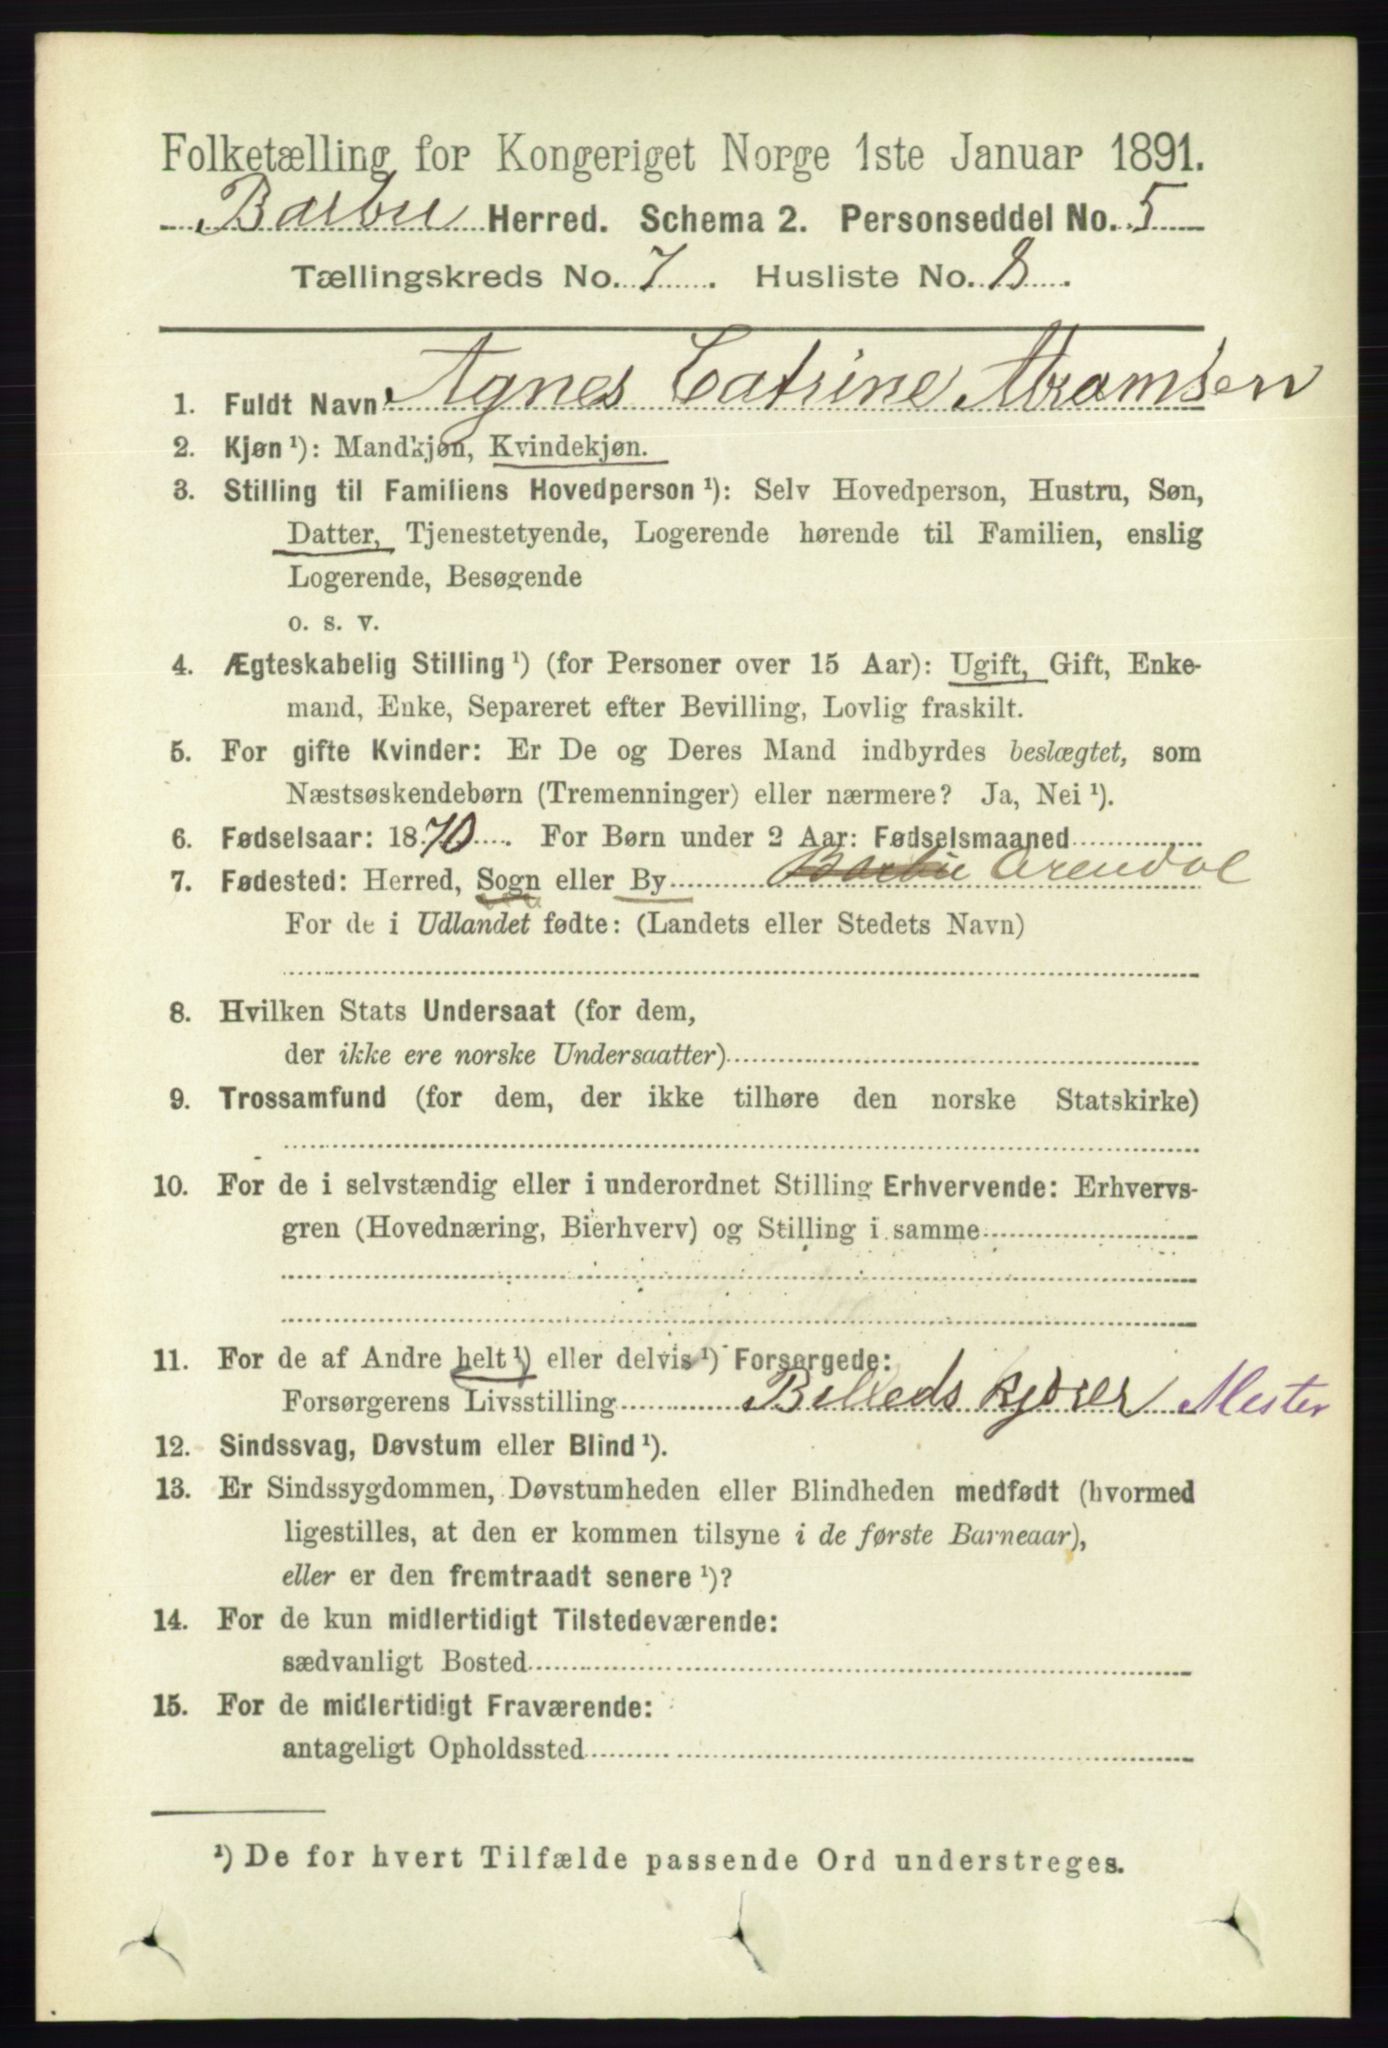 Folketælling for Kongeriget Norge 1ste Januar 1891.
Barbu Herred. Schema 2. Personseddel No. 5
Tællingskreds No. 7. Husliste No. 8.
1. Fuldt Navn Agnes Catrine Abramsen
2. Kjøn ¹): Mandkjøn, Kvindekjøn.
3. Stilling til Familiens Hovedperson ¹): Selv Hovedperson, Hustru, Søn,
Datter, Tjenestetyende, Logerende hørende til Familien, enslig
Logerende, Besøgende
o. s. v.
4. Ægteskabelig Stilling ¹) (for Personer over 15 Aar): Ugift, Gift, Enke-
mand, Enke, Separeret efter Bevilling, Lovlig fraskilt.
5. For gifte Kvinder: Er De og Deres Mand indbyrdes beslægtet, som
Næstsøskendebørn (Tremenninger) eller nærmere? Ja, Nei ¹).
6. Fødselsaar: 1870. For Børn under 2 Aar: Fødselsmaaned
7. Fødested: Herred, Sogn eller By Barbu Arendal
For de i Udlandet fødte: (Landets eller Stedets Navn)
8. Hvilken Stats Undersaat (for dem,
der ikke ere norske Undersaatter)
9. Trossamfund (for dem, der ikke tilhøre den norske Statskirke)
10. For de i selvstændig eller i underordnet Stilling Erhvervende: Erhvervs-
gren (Hovednæring, Bierhverv) og Stilling i samme
11. For de af Andre helt ¹) eller delvis ¹) Forsørgede:
Forsørgerens Livsstilling Billedskjærer Mester
12. Sindssvag, Døvstum eller Blind ¹).
13. Er Sindssygdommen, Døvstumheden eller Blindheden medfødt (hvormed
ligestilles, at den er kommen tilsyne i de første Barneaar),
eller er den fremtraadt senere ¹)?
14. For de kun midlertidigt Tilstedeværende:
sædvanligt Bosted
15. For de midlertidigt Fraværende:
antageligt Opholdssted
¹) De for hvert Tilfælde passende Ord understreges.